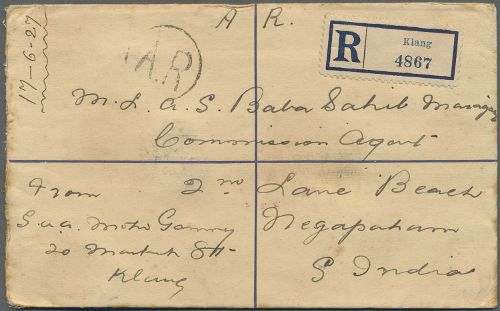 A R.
17-6-27
A.R
R
Klang
4867
M. L. a. S. Baba Sahib
Commission Agent
2nd Lane Beach
Negapatam
S India
From
S. a. a.
20 Market St
Klang